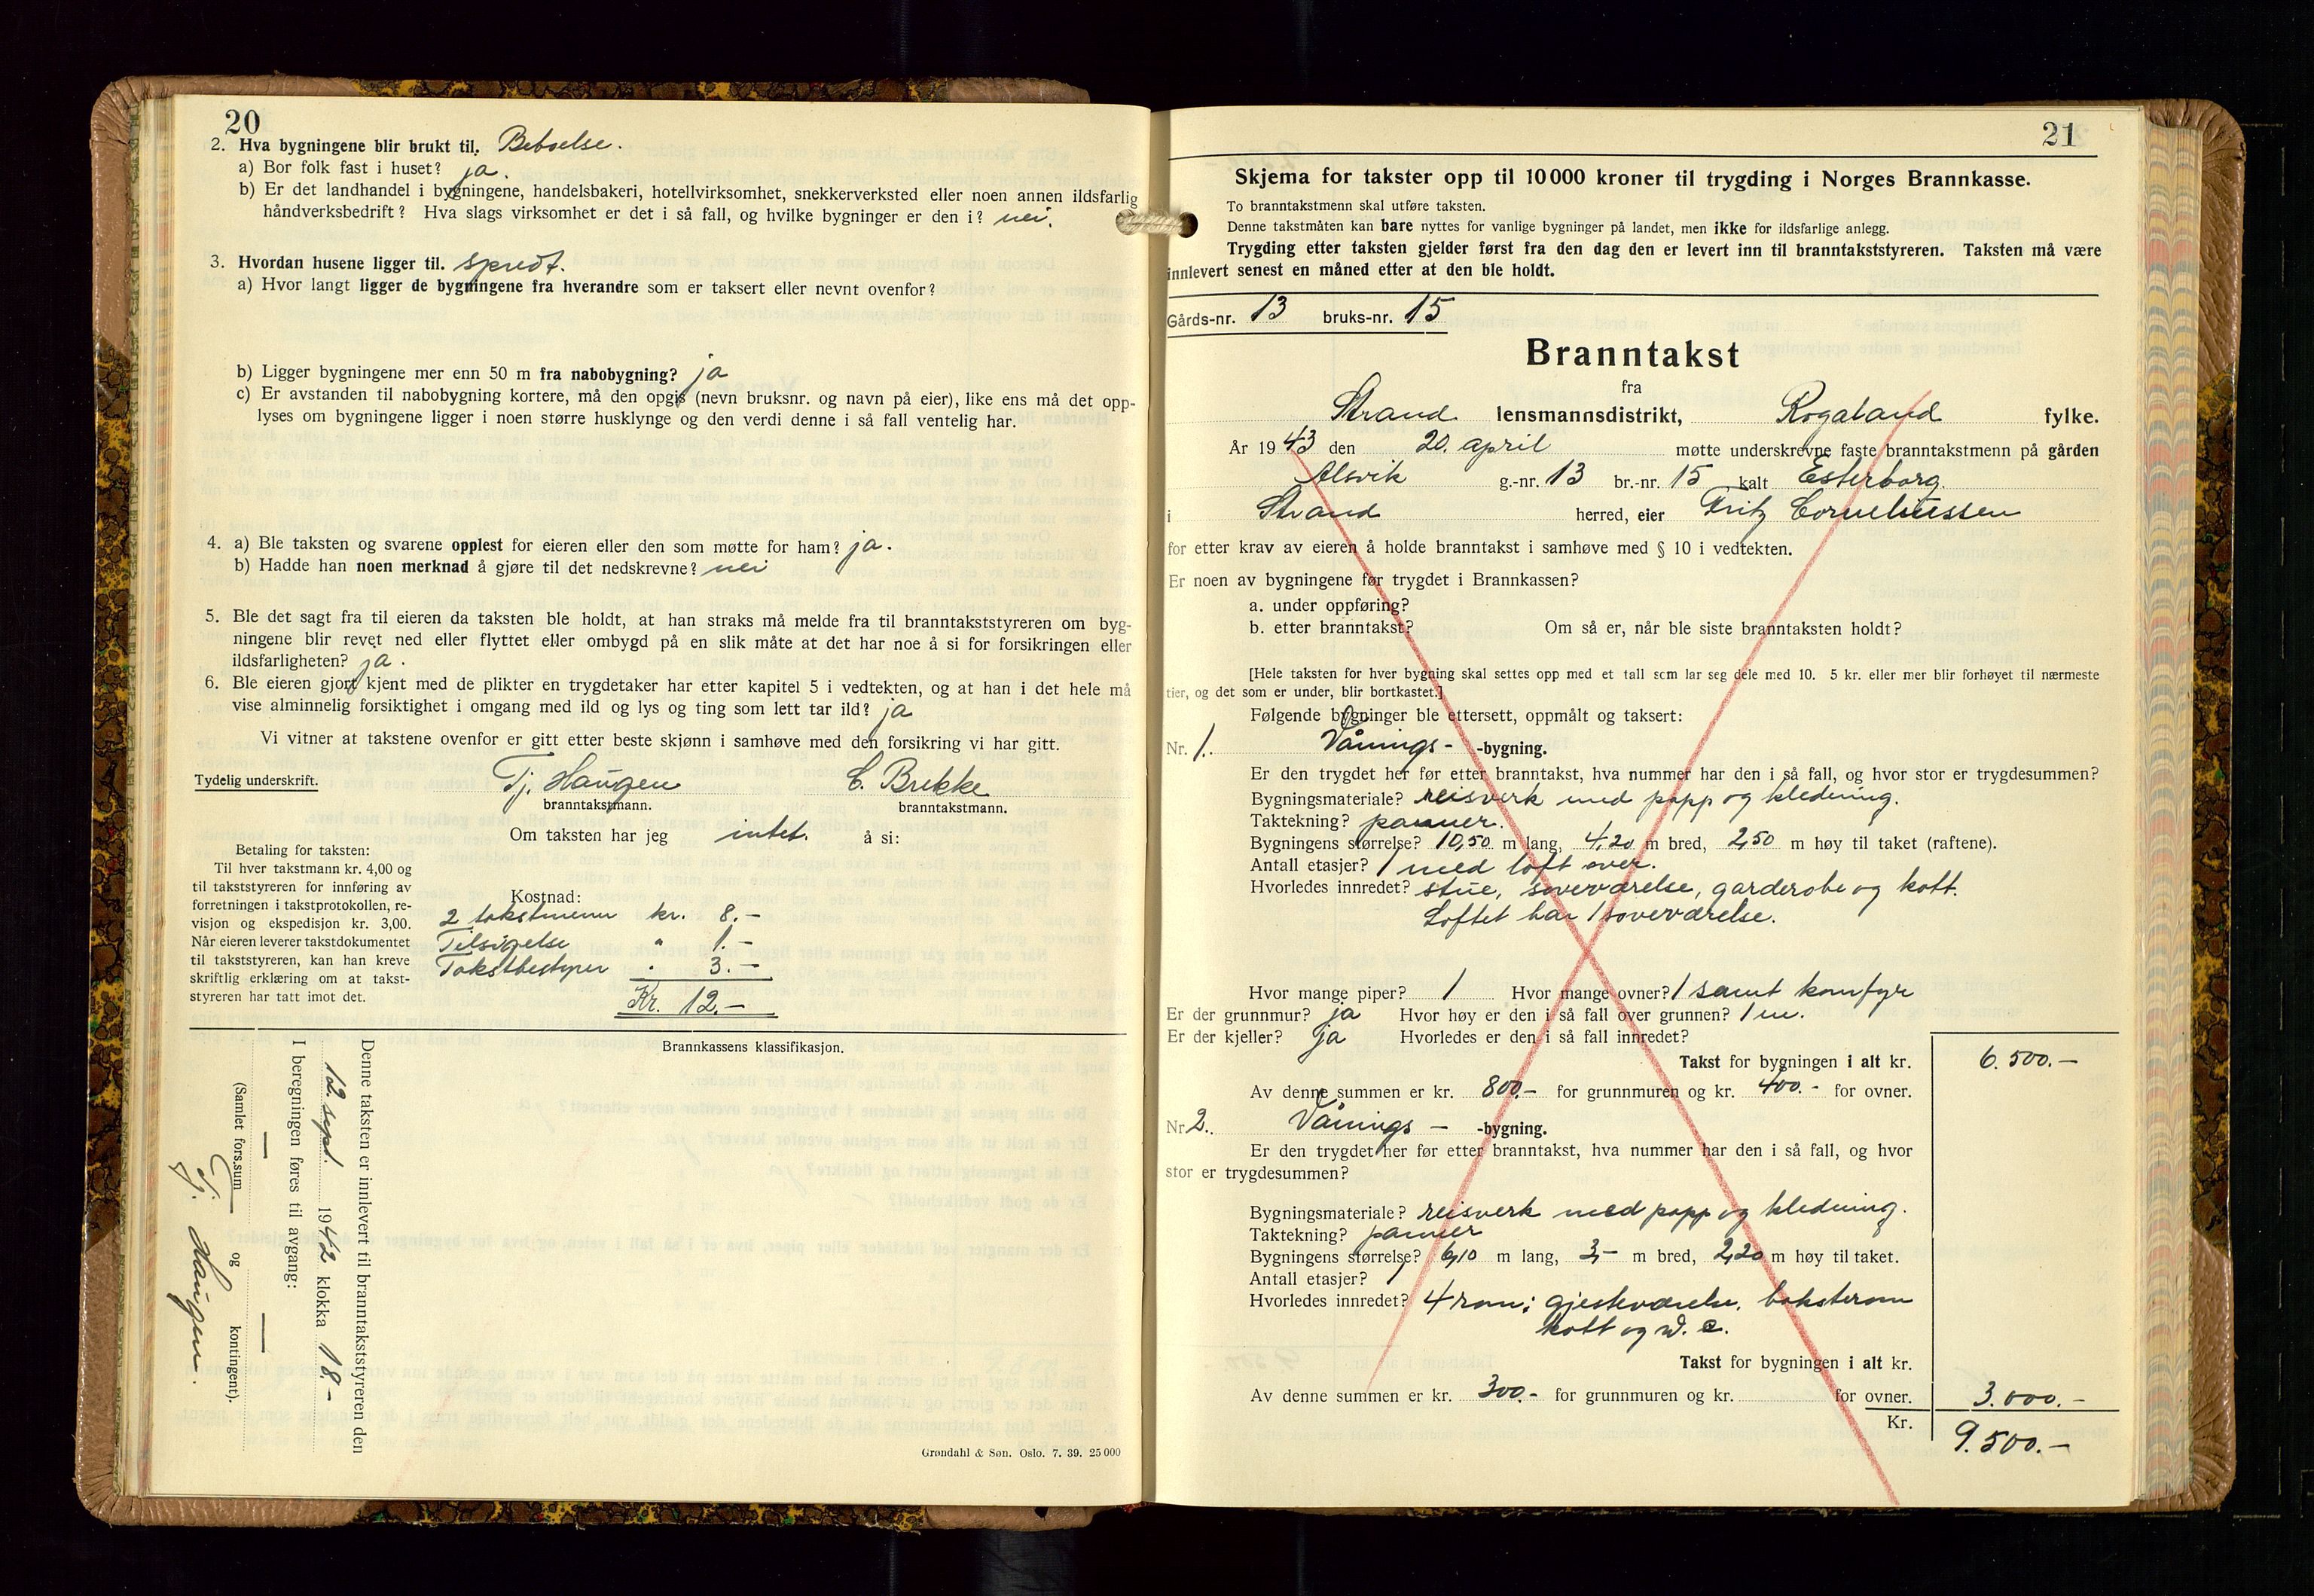 20
2. Hva bygningene blir brukt til. Beboelse.
a) Bor folk fast i huset? ja.
b) Er det landhandel i bygningene, handelsbakeri, hotellvirksomhet, snekkerverksted eller noen annen ildsfarlig
håndverksbedrift? Hva slags virksomhet er det i så fall, og hvilke bygninger er den i? nei.
3. Hvordan husene ligger til. spredt.
a) Hvor langt ligger de bygningene fra hverandre som er taksert eller nevnt ovenfor?
b) Ligger bygningene mer enn 50 m fra nabobygning? ja
c) Er avstanden til nabobygning kortere, må den opgis (nevn bruksnr. og navn på eier), like ens må det opp-
lyses om bygningene ligger i noen større husklynge og den verdi denne i så fall ventelig har.
4. a) Ble taksten og svarene opplest for eieren eller den som møtte for ham? ja.
b) Hadde han noen merknad å gjøre til det nedskrevne? nei
5. Ble det sagt fra til eieren da taksten ble holdt, at han straks må melde fra til branntakststyreren om byg-
ningene blir revet ned eller flyttet eller ombygd på en slik måte at det har noe å si for forsikringen eller
ildsfarligheten? ja.
6. Ble eieren gjort kjent med de plikter en trygdetaker har etter kapitel 5 i vedtekten, og at han i det hele må
vise alminnelig forsiktighet i omgang med ild og lys og ting som lett tar ild? ja
Vi vitner at takstene ovenfor er gitt etter beste skjønn i samhøve med den forsikring vi har gitt.
Tydelig underskrift. Tj. Haugen C. Brekke
branntakstmann. branntakstmann.
Om taksten har jeg intet. å si:
Betaling for taksten:
Til hver takstmann kr. 4,00 og
til takststyreren for innføring av
forretningen i takstprotokollen, re-
visjon og ekspedisjon kr. 3,00.
Når eieren leverer takstdokumentet
til takststyreren, kan han kreve
skriftlig erklæring om at takst-
styreren har tatt imot det.
Kostnad:
2 takstmenn kr. 8.-
Tilsigelse " 1.-
Takstbestyrer " 3.-
Kr. 12.-
Brannkassens klassifikasjon.
Denne taksten er innlevert til branntakststyreren den
12. sept. 1942 klokka 18.-
I beregningen føres til avgang:
(Samlet fors.sum — og — kontingent).
Tj. Haugen.
Grøndahl & Søn. Oslo. 7. 39. 25 000
21
Skjema for takster opp til 10 000 kroner til trygding i Norges Brannkasse.
To branntakstmenn skal utføre taksten.
Denne takstmåten kan bare nyttes for vanlige bygninger på landet, men ikke for ildsfarlige anlegg.
Trygding etter taksten gjelder først fra den dag den er levert inn til branntakststyreren. Taksten må være
innlevert senest en måned etter at den ble holdt.
Gårds-nr. 13 bruks-nr. 15
Branntakst
fra
Strand lensmannsdistrikt, Rogaland fylke.
År 1943 den 20. april møtte underskrevne faste branntakstmenn på gården
Alsvik g.-nr. 13 br.-nr. 15 kalt Esterborg.
i Strand herred, eier Fritz Corneliussen
for etter krav av eieren å holde branntakst i samhøve med § 10 i vedtekten.
Er noen av bygningene før trygdet i Brannkassen?
a. under oppføring?
b. etter branntakst? Om så er, når ble siste branntaksten holdt?
[Hele taksten for hver bygning skal settes opp med et tall som lar seg dele med 10. 5 kr. eller mer blir forhøyet til nærmeste
tier, og det som er under, blir bortkastet.]
Følgende bygninger ble ettersett, oppmålt og taksert:
Nr. 1. Vånings- -bygning.
Er den trygdet her før etter branntakst, hva nummer har den i så fall, og hvor stor er trygdesummen?
Bygningsmateriale? reisverk med papp og kledning.
Taktekning? panner.
Bygningens størrelse? 10,50 m lang, 4,20 m bred, 2,50 m høy til taket (raftene).
Antall etasjer? 1 med loft over.
Hvorledes innredet? stue, soveværelse, garderobe og kott.
Loftet har 1 soveværelse.
Hvor mange piper? 1 Hvor mange ovner? 1 samt komfyr
Er der grunnmur? ja Hvor høy er den i så fall over grunnen? 1 m.
Er der kjeller? ja Hvorledes er den i så fall innredet?
Takst for bygningen i alt kr. 6.500.-
Av denne summen er kr. 800.- for grunnmuren og kr. 400.- for ovner.
Nr 2. Vånings - -bygning.
Er den trygdet her før etter branntakst, hva nummer har den i så fall, og hvor
stor er trygdesummen?
Bygningsmateriale? reisverk med papp og kledning.
Taktekning? panner
Bygningens størrelse? 6,10 m lang, 3,- m bred, 2,20 m høy til taket.
Antall etasjer? 1
Hvorledes innredet? 4 rom: gjesteværelse, baksterom
kott og W. C.
Takst for bygningen i alt kr.
Av denne summen er kr. 300.- for grunnmuren og kr. for ovner. 3.000.-
Kr. 9.500.-